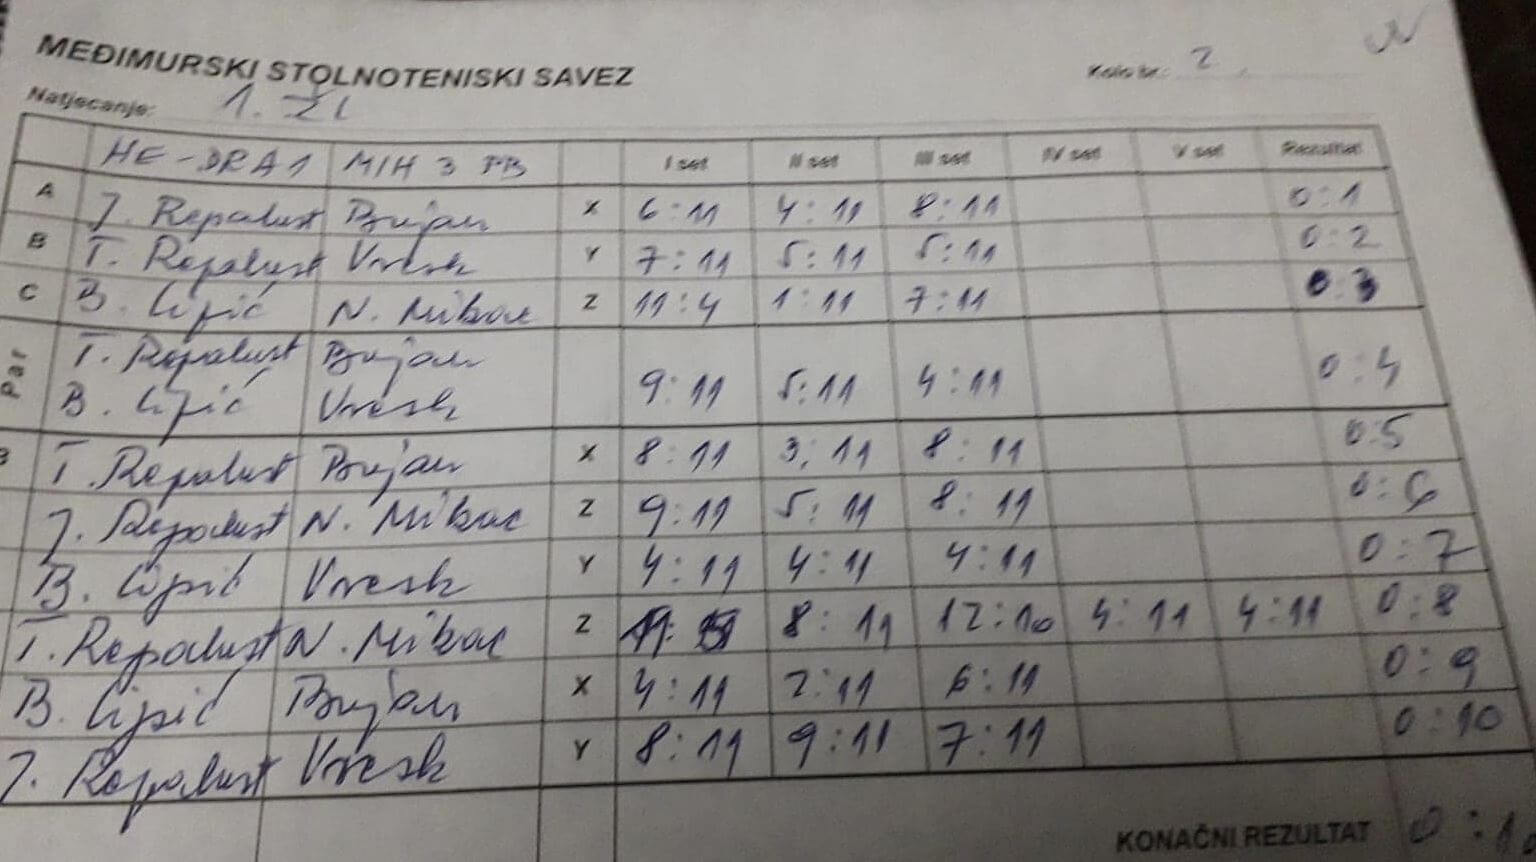 MEĐIMURSKI STOLNOTENISKI SAVEZ
Kolo br.: 2
Natjecanje: 1. ŽL
HE-DRA 1 MIH 3 PB I set II set III set IV set V set Rezultat
A J. Repalust Bujan X 6:11 4:11 8:11 0:1
B T. Repalust Vresk Y 7:11 5:11 5:11 0:2
C B. Cipić N. Mikac Z 11:4 1:11 7:11 0:3
Par T. Repalust Bujan
B. Cipić Vresk 9:11 5:11 4:11 0:4
B T. Repalust Bujan X 8:11 3:11 8:11 0:5
J. Repalust N. Mikac Z 9:11 5:11 8:11 0:6
B. Cipić Vresk Y 4:11 4:11 4:11 0:7
T. Repalust N. Mikac Z 8:11 12:10 4:11 4:11 0:8
B. Cipić Bujan X 4:11 2:11 6:11 0:9
J. Repalust Vresk Y 8:11 9:11 7:11 0:10
KONAČNI REZULTAT 0:10